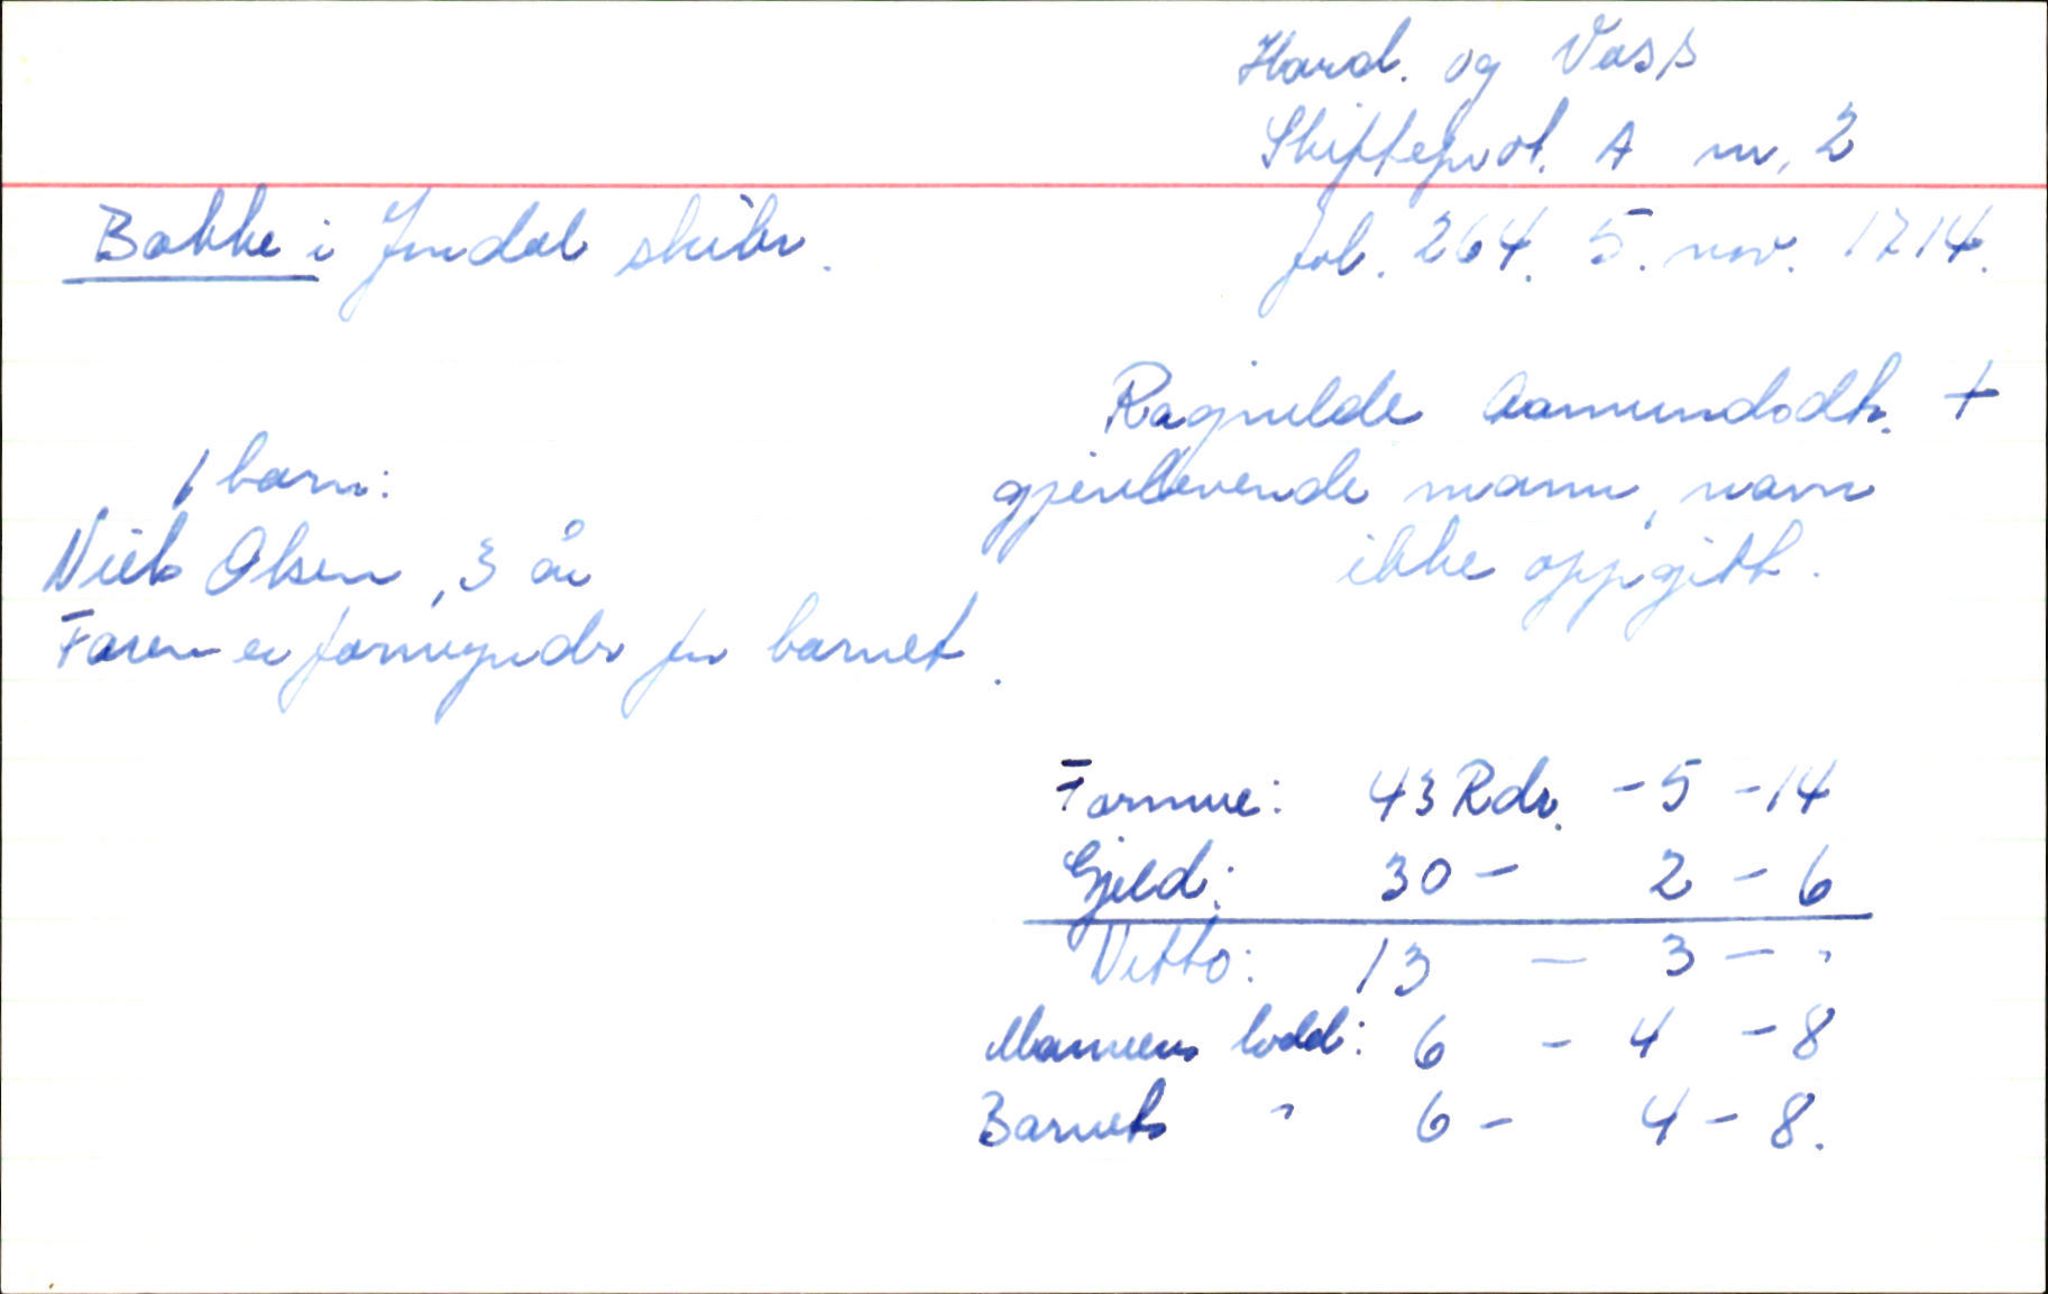 Hard. og Voss
Skifteprot. A nr. 2
Bakke i Jondal skibr.
fol. 264. 5. nov. 1714.
Ragnilde Aamundsdtr. +
gjenlevende mann, navn
ikke oppgitt.
1 barn:
Niels Olsen, 3 år
Faren er formynder for barnet.
Formue: 43 Rdr. - 5 - 14
Gjeld: 30 - 2 - 6
Netto: 13 - 3 - "
Mannens lodd: 6 - 4 - 8
Barnets " 6 - 4 - 8.